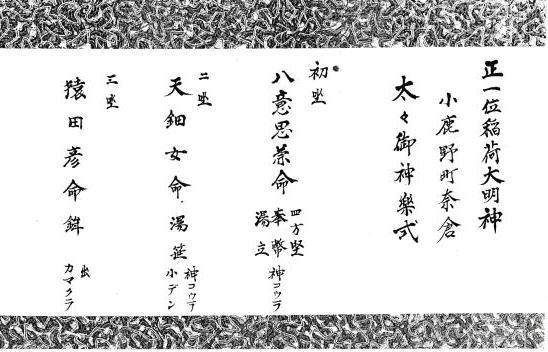 正一位稲荷大明神
小鹿野町奈倉
太々御神樂式
初坐
八意思兼命 四方堅 奉幣 湯立 神コウテ
二坐
天鈿女命 湯笹 神コウテ 小デン
三坐
猿田彦命 鉾 出 カマクラ